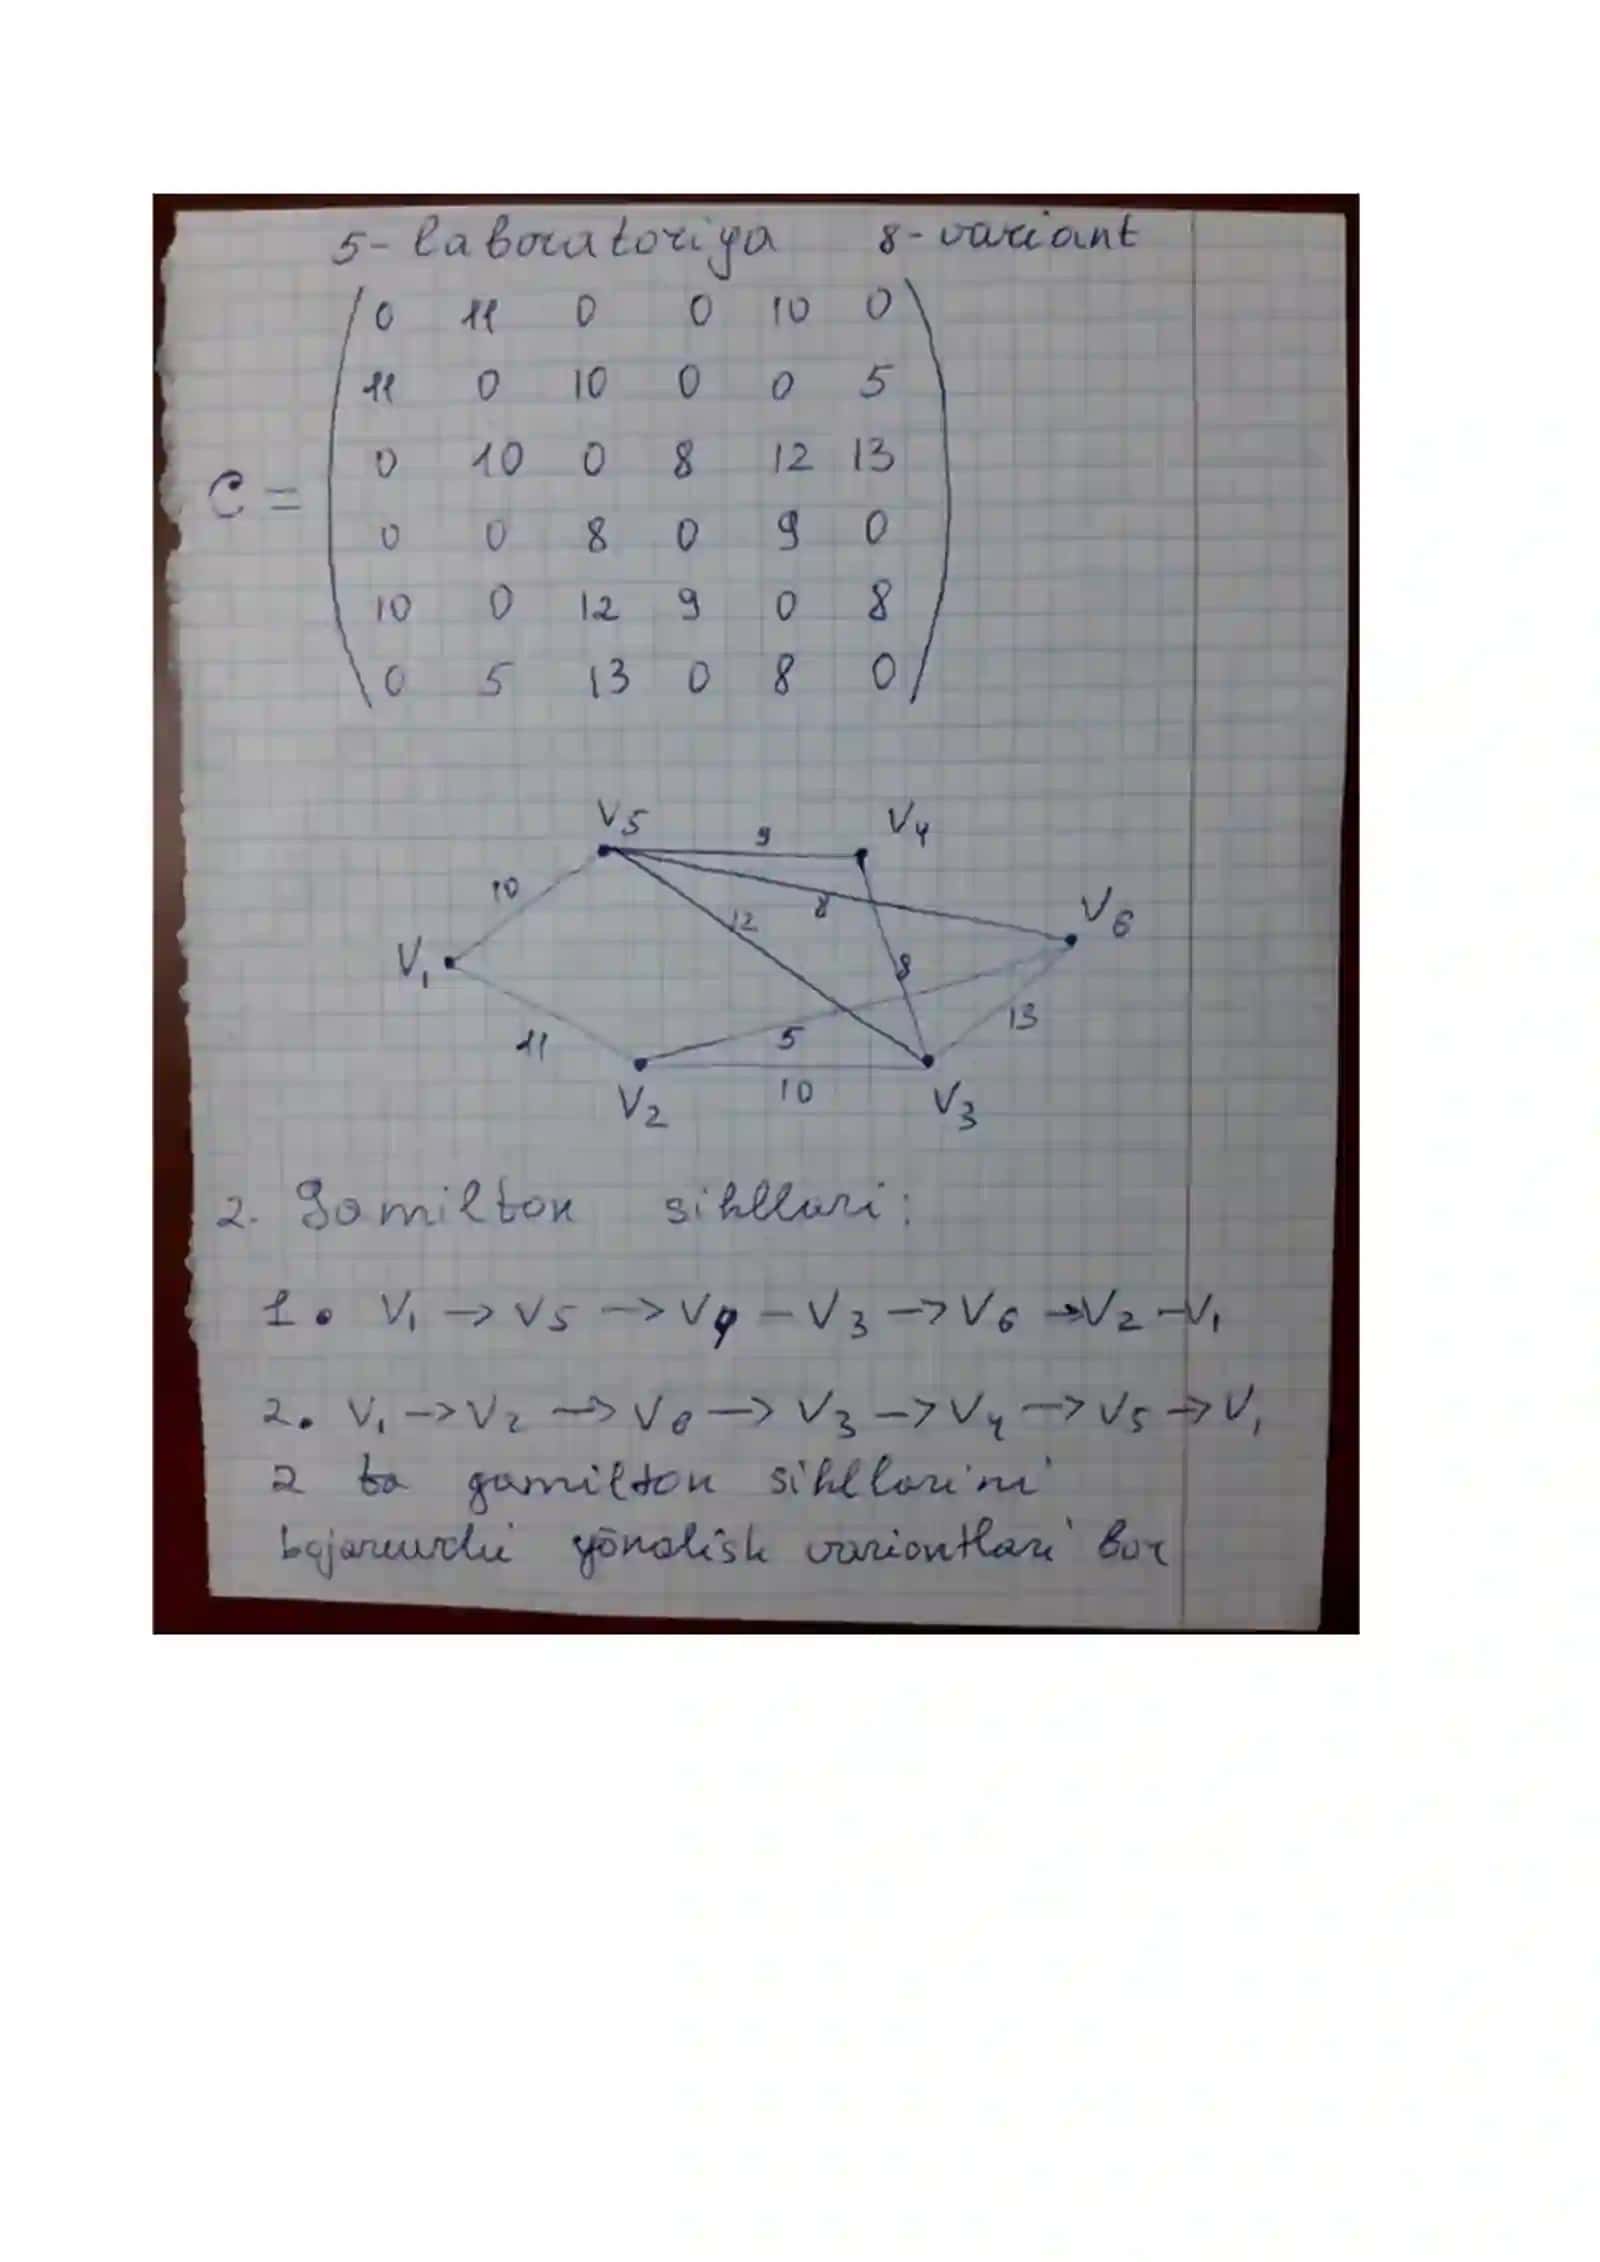 5-laboratoriya 8-variant
0 11 0 0 10 0
11 0 10 0 0 5
0 10 0 8 12 13
C =
0 0 8 0 9 0
10 0 12 9 0 8
0 5 13 0 8 0
V5 9 V4
10 8 V6
12
V1 8
13
11 5
V2 10 V3
2. Gamilton sikllari:
1. V1 → V5 → V4 – V3 → V6 → V2 – V1
2. V1 → V2 → V6 → V3 → V4 → V5 → V1
2 ta gamilton sikllarini
bajaruvchi yōnalish variantlari bor